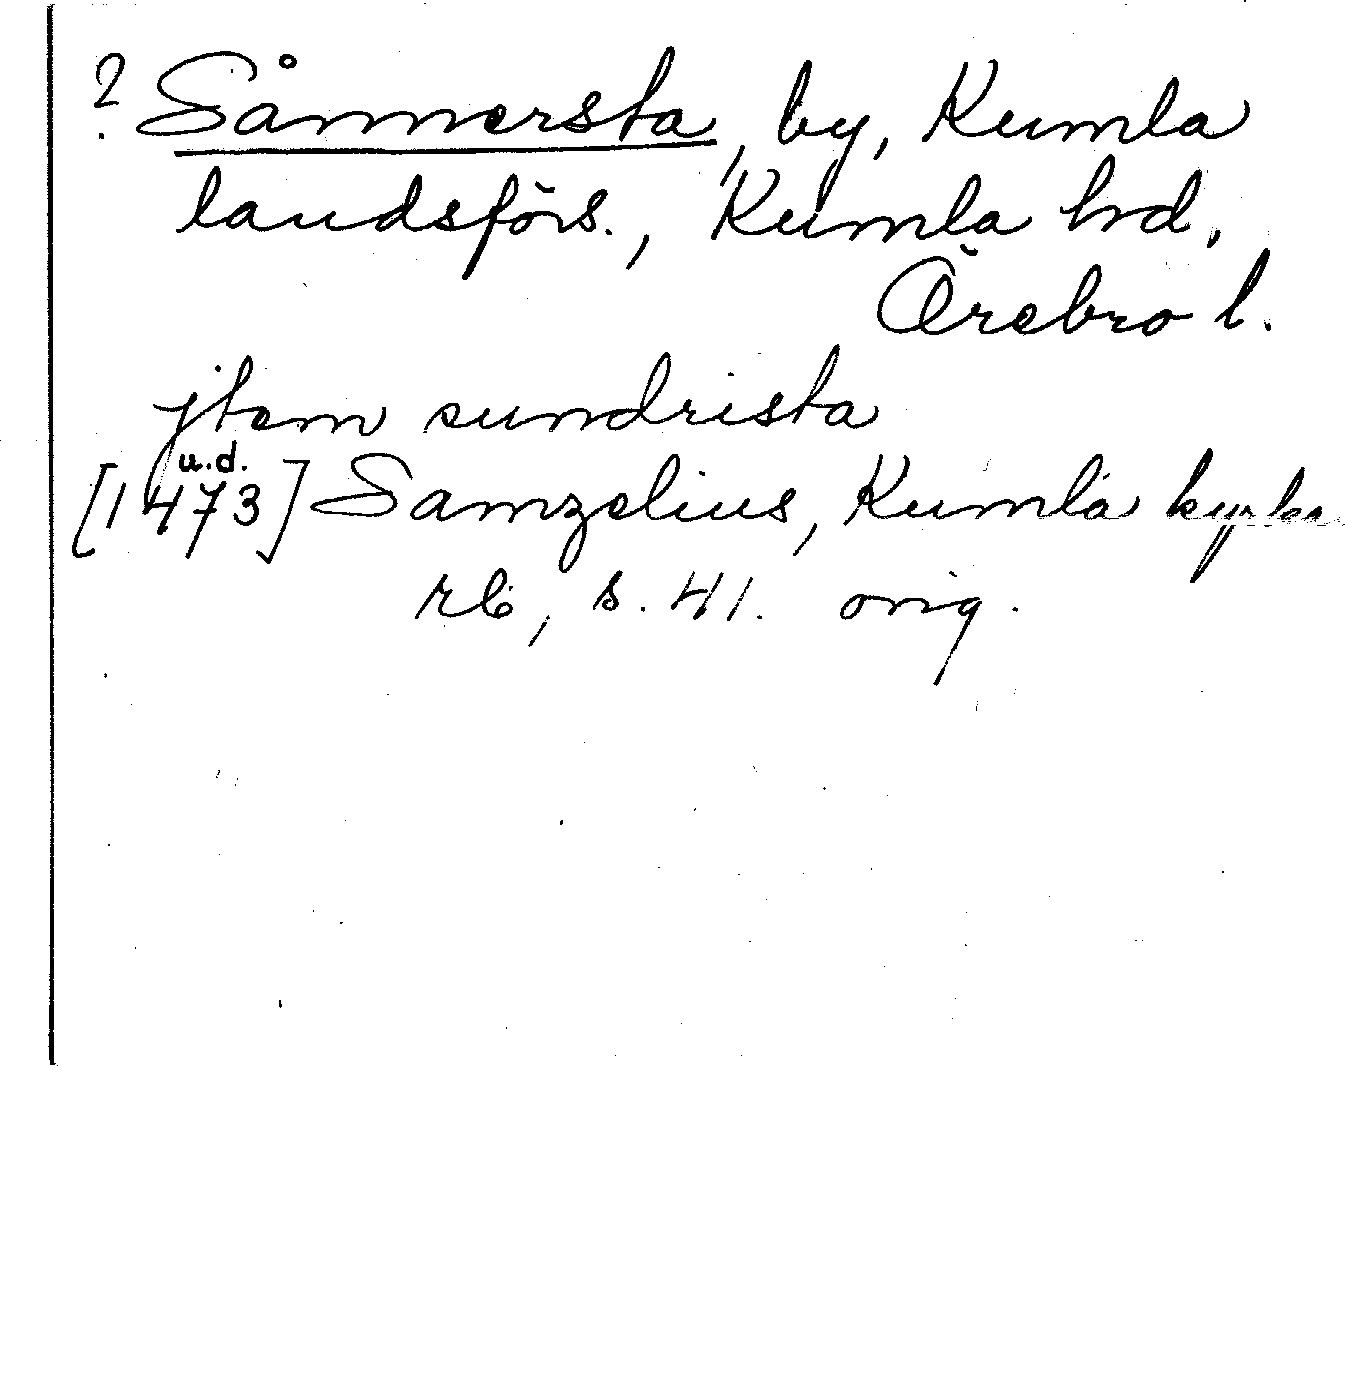 ? Sånnersta, by, Kumla
landsförs., Kumla hrd,
Örebro l.
jtem sundrista
u.d.
[1473] Samzelius, Kumla kyrkas
rb, s. 41. orig.